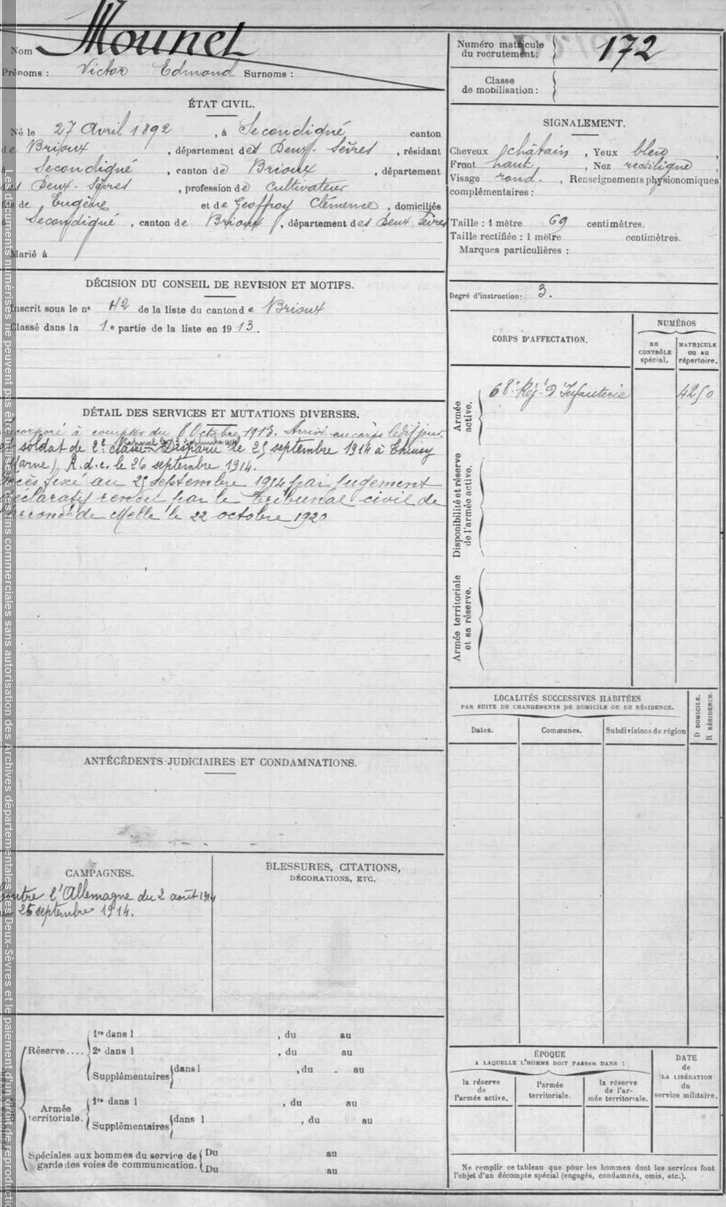 Nom Mounet
Prénoms : Victor Edmond Surnoms :
Numéro matricule du recrutement : 172
Classe de mobilisation :
ÉTAT CIVIL.
Né le 27 Avril 1892, à Secondigné canton
de Brioux, département des Deux-Sèvres, résidant
à Secondigné, canton de Brioux, département
des Deux-Sèvres, profession de Cultivateur
de Eugène et de Geoffroy Clémence, domiciliés
à Secondigné, canton de Brioux, département des Deux Sèvres
Marié à
SIGNALEMENT.
Cheveux châtain, Yeux bleu
Front haut, Nez rectiligne,
Visage rond, Renseignements physionomiques
complémentaires :
Taille : 1 mètre 69 centimètres.
Taille rectifiée : 1 mètre centimètres.
Marques particulières :
Degré d'instruction : 3.
DÉCISION DU CONSEIL DE REVISION ET MOTIFS.
Inscrit sous le n° 42 de la liste du canton de Brioux
Classé dans la 1e partie de la liste en 1913.
DÉTAIL DES SERVICES ET MUTATIONS DIVERSES.
Incorporé à compter du 8 Octobre 1913. Arrivé au corps le dit jour
soldat de 2e classe. Disparu le 25 septembre 1914 à
(Marne). R.d.c. le 26 septembre 1914.
Décès fixé au 25 septembre 1914 par jugement
déclaratif rendu par le Tribunal civil de
de Melle le 22 octobre 1920
CORPS D'AFFECTATION.
NUMÉROS
AU CONTRÔLE spécial.
MATRICULE OU AU répertoire.
Armée active.
68e Rég. d'Infanterie 4250
Disponibilité et réserve de l'armée active.
Armée territoriale et sa réserve.
LOCALITÉS SUCCESSIVES HABITÉES
PAR SUITE DE CHANGEMENTS DE DOMICILE OU DE RÉSIDENCE.
Dates.
Communes.
Subdivisions de région
D DOMICILE.
R RÉSIDENCE.
ANTÉCÉDENTS JUDICIAIRES ET CONDAMNATIONS.
CAMPAGNES.
Contre l'Allemagne du 2 août 1914
25 septembre 1914.
BLESSURES, CITATIONS,
DÉCORATIONS, ETC.
Réserve....
1re dans l , du au
2e dans l , du au
Supplémentaires dans l , du au
Armée territoriale.
1re dans l , du au
Supplémentaires dans l , du au
Spéciales aux hommes du service de garde des voies de communication.
Du au
Du au
ÉPOQUE
A LAQUELLE L'HOMME DOIT PASSER DANS :
la réserve de l'armée active.
l'armée territoriale.
la réserve de l'armée territoriale.
DATE de LA LIBÉRATION du service militaire.
Ne remplir ce tableau que pour les hommes dont les services font
l'objet d'un décompte spécial (engagés, condamnés, omis, etc.).
Les documents numérisés ne peuvent pas être utilisés à des fins commerciales sans autorisation des Archives départementales des Deux-Sèvres et le paiement d'un droit de reproduction